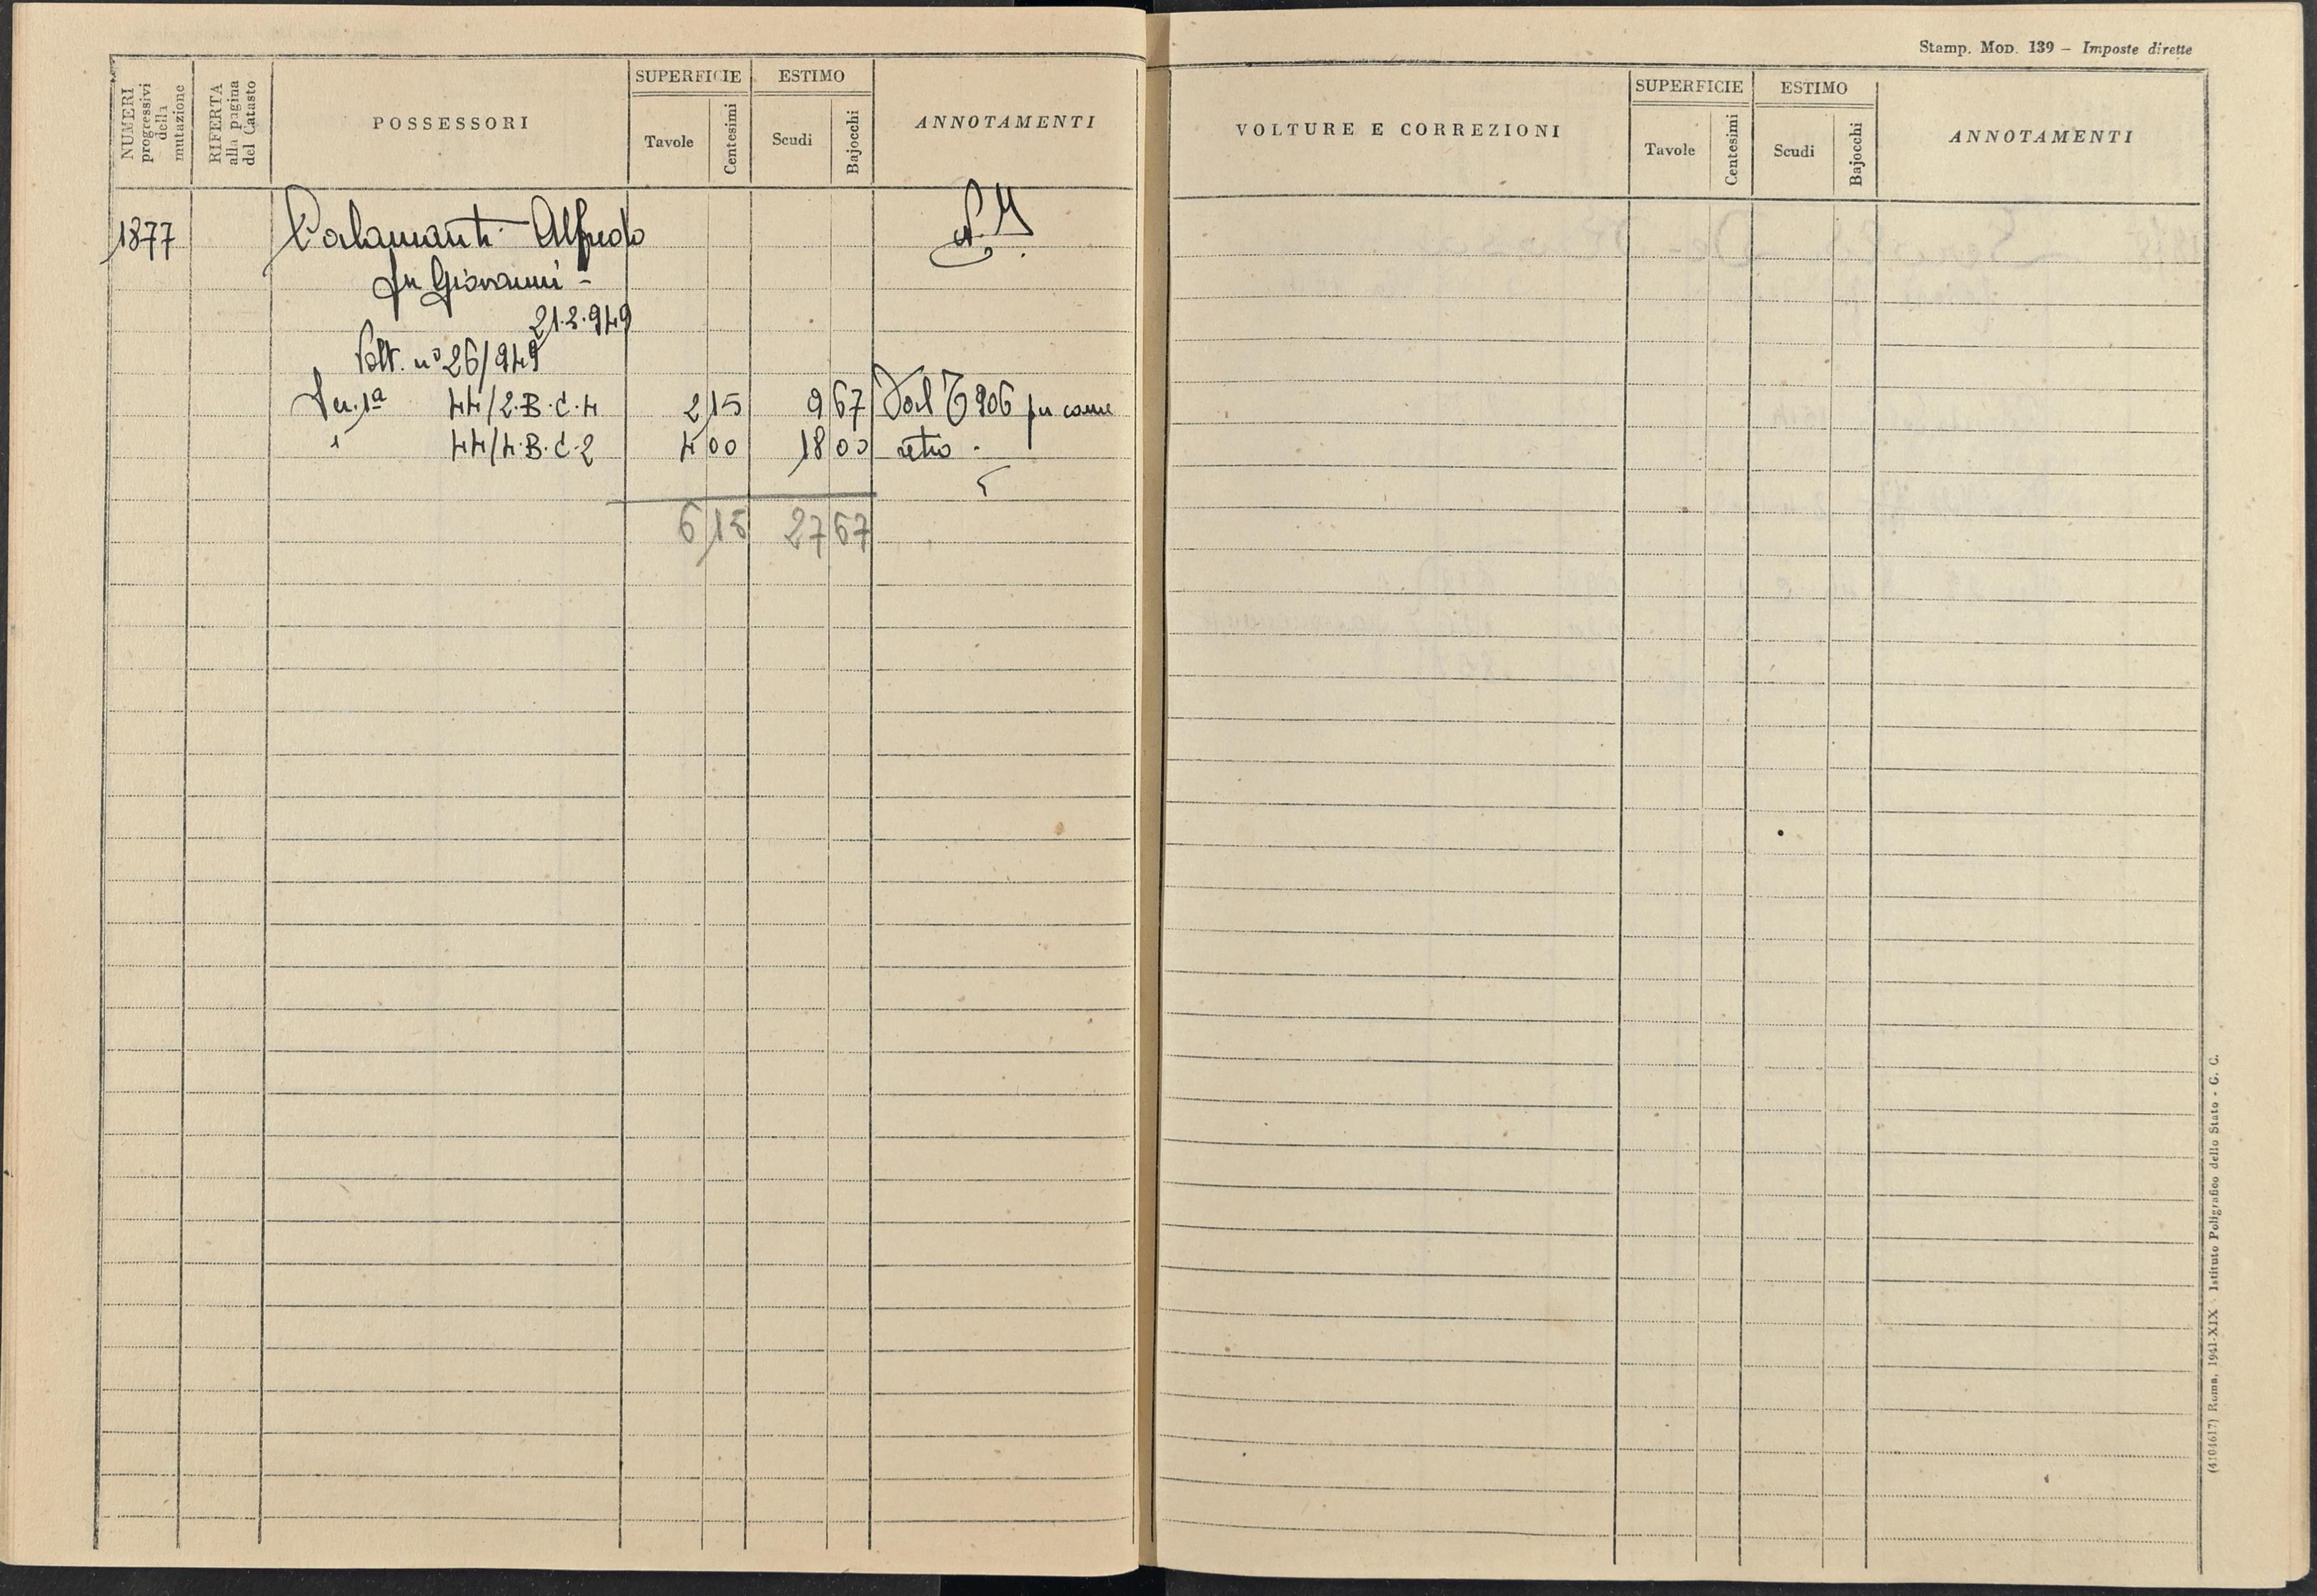 Stamp. Mod. 139 – Imposte dirette
NUMERI progressivi della mutazione
RIFERTA alla pagina del Catasto
POSSESSORI
SUPERFICIE
Tavole
Centesimi
ESTIMO
Scudi
Bajocchi
ANNOTAMENTI
1877 Calamanti Alfredo
fu Giovanni -
21.2.949
Volt. n° 26/949
1ª 44/2.B.C.4 2 15 9 67 Dal 906 per come
44/4.B.C.2 4 00 18 00 retro .
6 15 27 67
VOLTURE E CORREZIONI
SUPERFICIE
Tavole
Centesimi
ESTIMO
Scudi
Bajocchi
ANNOTAMENTI
(4104617) Roma, 1941-XIX - Istituto Poligrafico dello Stato - G. C.